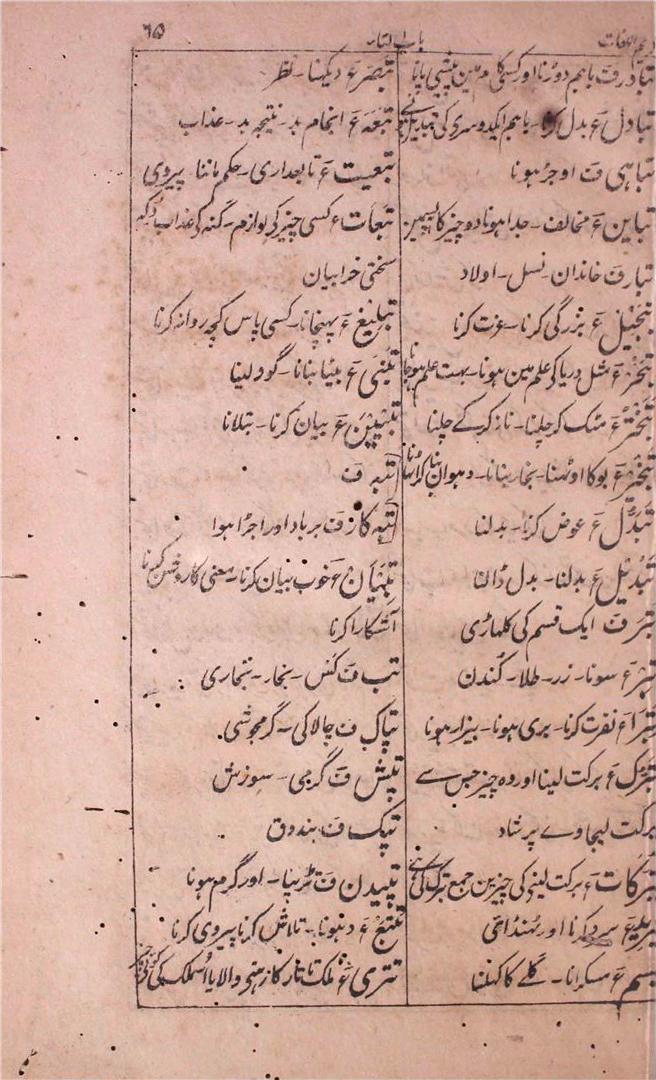 ۶۵
باب التاء
اللغات
تبادر ف باہم دوڑنا اور کسی کام مین پیشی پانا
تبادل ع بدل کرنا۔ باہم ایکدوسری کی تبدیل
تباہی ف اوجڑ ہونا
تباین ع مخالف۔ جدا ہونا دو چیز کا
تبار ف خاندان۔ نسل۔ اولاد
تبجیل ع بزرگی کرنا۔ عزت کرنا
تبحر ع مثل دریا کے علم مین ہونا۔ بہت علم ہوجانا
تبختر ع مٹک کر چلنا۔ ناز کرکے چلنا
تبخیر ع بوکا اوٹھنا۔ بخار بنانا۔ دھوان بناکر اڑانا
تبدل ع عوض کرنا۔ بدلنا
تبدیل ع بدلنا۔ بدل ڈالنا
تبر ف ایک قسم کی کلہاڑی
تبر ع سونا۔ زر۔ طلا۔ کندن
تبرا ع نفرت کرنا۔ بری ہونا۔ بیزار ہونا
تبرک ع برکت لینا اور وہ چیز جس سے
برکت لیجاوے پرشاد
تبرکات ع برکت لینے کی چیزین جمع تبرک کی ہے
تبرید ع سرد کرنا اور ٹھنڈائی
تبسم ع مسکرانا۔ گلے کا کھلنا
تبصر ع دیکھنا۔ نظر
تبعہ ع انجام بد۔ نتیجہ بد۔ عذاب
تبعیت ع تابعداری۔ حکم ماننا پیروی
تبعات ع کسی چیز کے لوازم۔ گنہ کے عذاب دکھ
سختی خرابیان
تبلیغ ع پہنچانا۔ کسی پاس کچھ روانہ کرنا
تبنی ع بیٹا بنانا۔ گود لینا
تبیین ع بیان کرنا۔ بتلانا
تبہ ف
تبہ کار ف برباد اور اجڑا ہوا
تبیان ع خوب بیان کرنا۔ معنی کا روشن کرنا
آشکارا کرنا
تب ف کس۔ بخار۔ بخاری
تپاک ف چالاکی۔ گرمجوشی۔
تپش ف گرمی۔ سوزش
تپک ف بندوق
تپیدن ف تڑپنا۔ اور گرم ہونا
تتبع ع ڈہونڈنا۔ تلاش کرنا پیروی کرنا
تتری ع ملک تاتار کا رہنے والا یا اس ملک کی